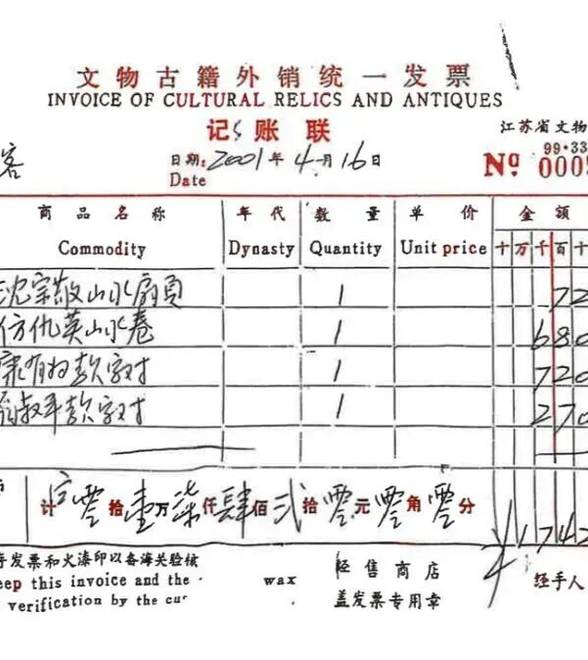 文物古籍外销统一发票
INVOICE OF CULTURAL RELICS AND ANTIQUES
记账联
江苏省文物
客
日期: 2001年 4月 16日
Date
99·33
Nº 000
商品名称 年代 数量 单价 金额
Commodity Dynasty Quantity Unit price 十万千百十
沈宗敬山水扇页 1 72
仿仇英山水卷 1 680
康有为款字对 1 720
翁叔平款字对 1 270
计 零拾壹万柒仟肆佰贰拾零元零角零分 ¥ 1742
发票和火漆印以备海关验核
eep this invoice and the wax 经售商店
verification by the cu 盖发票专用章
经手人